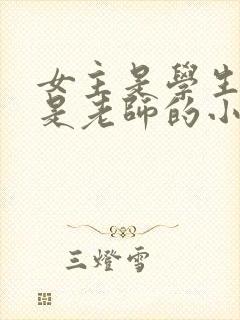 女主是學生
是老師的小
三燈雪